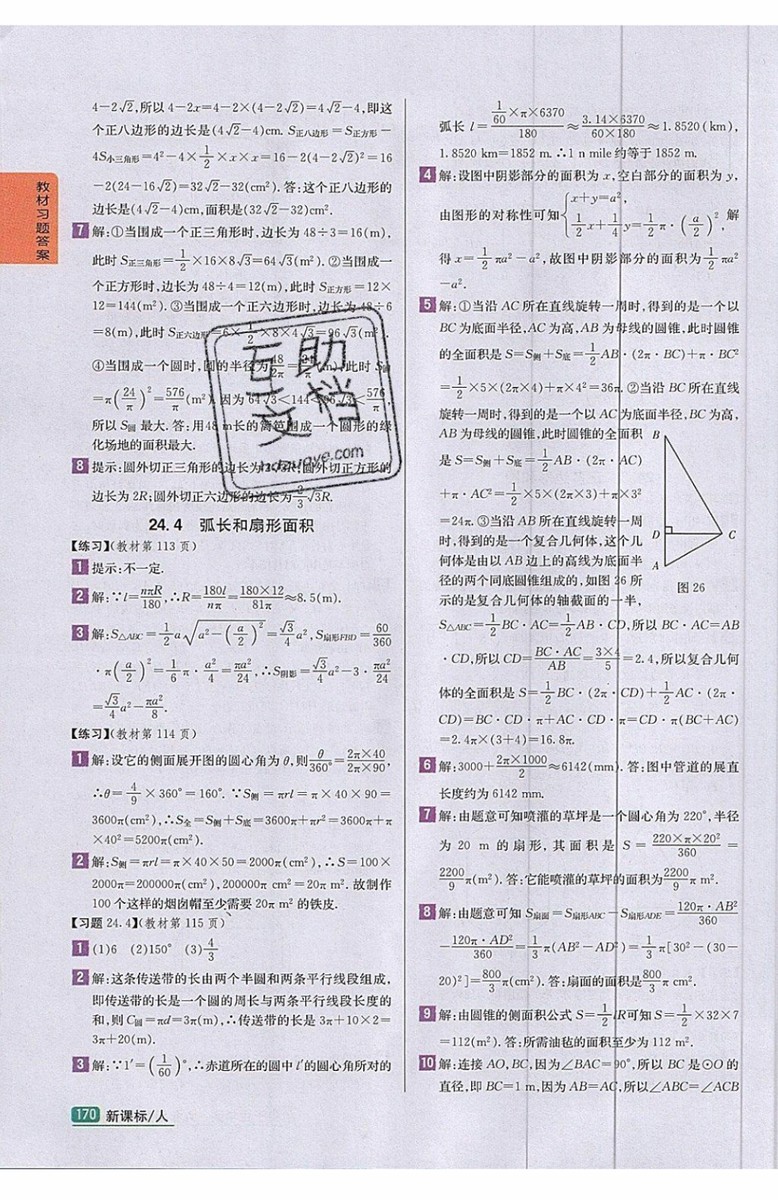 教材习题答案
4-2√2,所以 4-2x=4-2×(4-2√2)=4√2-4,即这
个正八边形的边长是(4√2-4)cm. S正八边形=S正方形-
4S小三角形=4²-4×1/2×x×x=16-2(4-2√2)²=16
-2(24-16√2)=32√2-32(cm²).答:这个正八边形的
边长是(4√2-4)cm,面积是(32√2-32)cm².
7 解:①当围成一个正三角形时,边长为 48÷3=16(m),
此时 S正三角形=1/2×16×8√3=64√3(m²).②当围成一
个正方形时,边长为 48÷4=12(m),此时 S正方形=12×
12=144(m²).③当围成一个正六边形时,边长为 48÷6
=8(m),此时 S正六边形=6×1/2×8×4√3=96√3(m²).
④当围成一个圆时,圆的半径为48/2π=24/π(m),此时 S圆
=π(24/π)²=576/π(m²).因为 64√3<144<96√3<576/π,
所以 S圆 最大.答:用48 m长的篱笆围成一个圆形的绿
化场地的面积最大.
8 提示:圆外切正三角形的边长为 圆外切正方形的
边长为 2R;圆外切正六边形的边长为2/3√3R.
24.4 弧长和扇形面积
【练习】(教材第 113 页)
1 提示:不一定.
2 解:∵l=nπR/180,∴R=180l/nπ=180×12/81π≈8.5(m).
3 解:S△ABC=1/2a√(a²-(a/2)²)=√3/4a²,S扇形FBD=60/360
·π(a/2)²=1/6π·a²/4=πa²/24,∴S阴影=√3/4a²-3·πa²/24
=√3/4a²-πa²/8.
【练习】(教材第 114 页)
1 解:设它的侧面展开图的圆心角为 θ,则θ/360°=2π×40/2π×90,
∴θ=4/9×360°=160°. ∵S侧=πrl=π×40×90=
3600π(cm²),∴S全=S侧+S底=3600π+πr²=3600π+π
×40²=5200π(cm²).
2 解:S侧=πrl=π×40×50=2000π(cm²),∴S=100×
2000π=200000π(cm²),200000π cm²=20π m². 故制作
100 个这样的烟囱帽至少需要 20π m² 的铁皮.
【习题 24.4】(教材第 115 页)
1 (1)6 (2)150° (3)4/3
2 解:这条传送带的长由两个半圆和两条平行线段组成,
即传送带的长是一个圆的周长与两条平行线段长度的
和,则 C圆=πd=3π(m),∴传送带的长是 3π+10×2=
3π+20(m).
3 解:∵1′=(1/60)°,∴赤道所在的圆中 1′的圆心角所对的
弧长 l=(1/60×π×6370)/180≈3.14×6370/60×180≈1.8520(km),
1.8520 km=1852 m. ∴1 n mile约等于 1852 m.
4 解:设图中阴影部分的面积为 x,空白部分的面积为 y,
由图形的对称性可知{x+y=a², 1/2x+1/4y=1/2π·(a/2)², 解
得 x=1/2πa²-a²,故图中阴影部分的面积为1/2πa²
-a².
5 解:①当沿 AC 所在直线旋转一周时,得到的是一个以
BC 为底面半径,AC 为高,AB 为母线的圆锥,此时圆锥
的全面积是 S=S侧+S底=1/2AB·(2π·BC)+π·BC²
=1/2×5×(2π×4)+π×4²=36π.②当沿 BC 所在直线
旋转一周时,得到的是一个以 AC 为底面半径,BC 为高,
AB 为母线的圆锥,此时圆锥的全面积
是 S=S侧+S底=1/2AB·(2π·AC)
+π·AC²=1/2×5×(2π×3)+π×3²
=24π.③当沿 AB 所在直线旋转一周
时,得到的是一个复合几何体,这个几
何体是由以 AB 边上的高线为底面半
径的两个同底圆锥组成的,如图 26 所
示的是复合几何体的轴截面的一半,
B
D
C
A
图 26
S△ABC=1/2BC·AC=1/2AB·CD,所以 BC·AC=AB
·CD,所以 CD=BC·AC/AB=3×4/5=2.4,所以复合几何
体的全面积是 S=1/2BC·(2π·CD)+1/2AC·(2π·
CD)=BC·CD·π+AC·CD·π=CD·π(BC+AC)
=2.4π×(3+4)=16.8π.
6 解:3000+2π×1000/2≈6142(mm).答:图中管道的展直
长度约为 6142 mm.
7 解:由题意可知喷灌的草坪是一个圆心角为 220°,半径
为 20 m 的扇形,其面积是 S=220×π×20²/360=
2200/9π(m²).答:它能喷灌的草坪的面积为2200/9π m².
8 解:由题意可知 S扇面=S扇形ABC-S扇形ADE=120π·AB²/360
-120π·AD²/360=1/3π(AB²-AD²)=1/3π[30²-(30-
20)²]=800/3π(cm²).答:扇面的面积是800/3π cm².
9 解:由圆锥的侧面积公式 S=1/2lR可知 S=1/2×32×7
=112(m²).答:所需油毡的面积至少为 112 m².
10 解:连接 AO,BC,因为∠BAC=90°,所以 BC 是⊙O 的
直径,即 BC=1 m,因为 AB=AC,所以∠ABC=∠ACB
170 新课标/人
互助
文档
hdzuoye.com